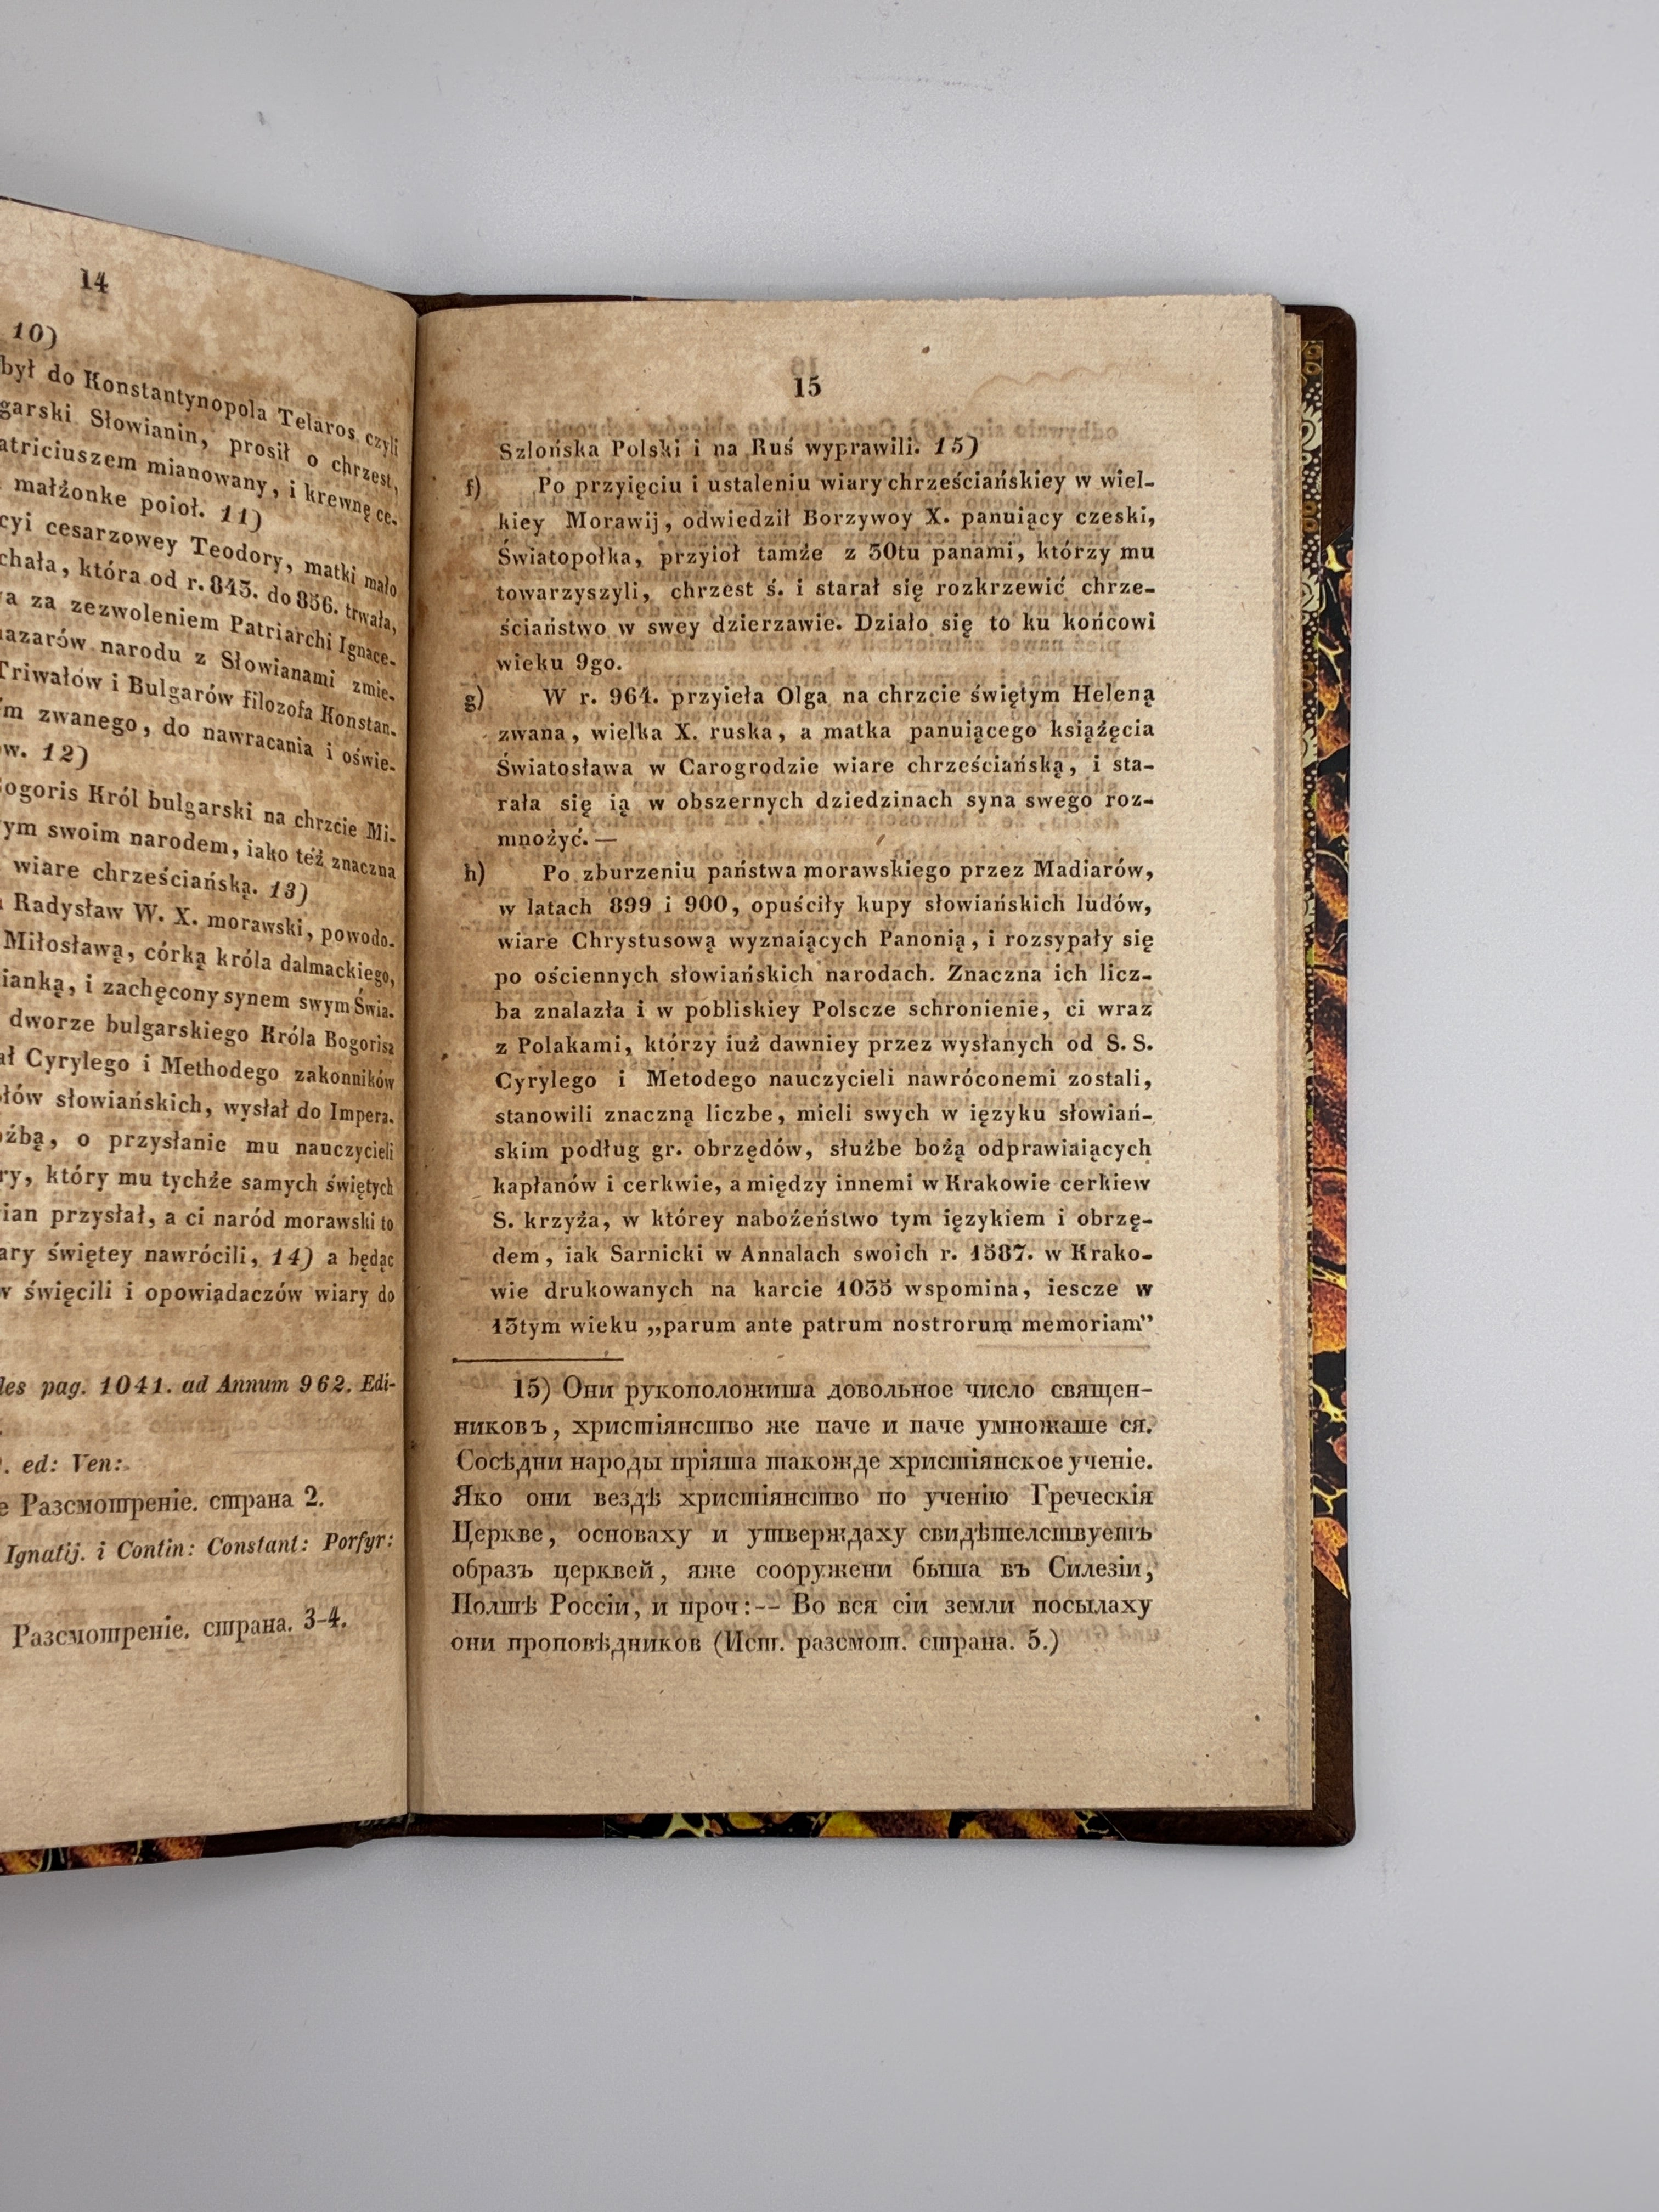 14
10)
był do Konstantynopola Telaros czyli
garski Słowianin, prosił o chrzest,
atriciuszem mianowany, i krewnę ce-
małżonke poioł. 11)
cyi cesarzowey Teodory, matki mało
chała, która od r. 843. do 856. trwała,
za zezwoleniem Patriarchi Ignace-
azarów narodu z Słowianami zmie-
Triwałów i Bulgarów filozofa Konstan-
m zwanego, do nawracania i oświe-
ów. 12)
ogoris Król bulgarski na chrzcie Mi-
ym swoim narodem, iako też znaczna
wiare chrześciańską. 13)
Radysław W. X. morawski, powodo-
Miłosławą, córką króla dalmackiego,
ianką, i zachęcony synem swym Świa-
dworze bulgarskiego Króla Bogorisa
ał Cyrylego i Methodego zakonników
słów słowiańskich, wysłał do Impera-
oźbą, o przysłanie mu nauczycieli
ry, który mu tychże samych świętych
ian przysłał, a ci naród morawski to
ary świętey nawrócili, 14) a będąc
w święcili i opowiadaczów wiary do
les pag. 1041. ad Annum 962. Edi-
ed: Ven:
е Разсмотреніе. страна 2.
Ignatij. i Contin: Constant: Porfyr:
Разсмотреніе. страна. 3-4.
15
Szlońska Polski i na Ruś wyprawili. 15)
f) Po przyięciu i ustaleniu wiary chrześciańskiey w wiel-
kiey Morawij, odwiedził Borzywoy X. panuiący czeski,
Światopołka, przyioł tamże z 30tu panami, którzy mu
towarzyszyli, chrzest ś. i starał się rozkrzewić chrze-
ściaństwo w swey dzierzawie. Działo się to ku końcowi
wieku 9go.
g) W r. 964. przyieła Olga na chrzcie świętym Heleną
zwana, wielka X. ruska, a matka panuiącego książęcia
Światosława w Carogrodzie wiare chrześciańską, i sta-
rała się ią w obszernych dziedzinach syna swego roz-
mnożyć. —
h) Po zburzeniu państwa morawskiego przez Madiarów,
w latach 899 i 900, opuściły kupy słowiańskich ludów,
wiare Chrystusową wyznaiących Panonią, i rozsypały się
po ościennych słowiańskich narodach. Znaczna ich licz-
ba znalazła i w pobliskiey Polscze schronienie, ci wraz
z Polakami, którzy iuż dawniey przez wysłanych od S. S.
Cyrylego i Metodego nauczycieli nawróconemi zostali,
stanowili znaczną liczbe, mieli swych w ięzyku słowiań-
skim podług gr. obrzędów, służbe bożą odprawiaiących
kapłanów i cerkwie, a między innemi w Krakowie cerkiew
S. krzyża, w którey nabożeństwo tym ięzykiem i obrzę-
dem, iak Sarnicki w Annalach swoich r. 1587. w Krako-
wie drukowanych na karcie 1035 wspomina, iescze w
15tym wieku „parum ante patrum nostrorum memoriam”
15) Они рукоположиша довольное число священ-
никовъ, христіянство же паче и паче умножаше ся.
Сосѣдни народы пріяша такожде христіянское ученіе.
Яко они вездѣ христіянство по ученію Греческія
Церкве, основаху и утверждаху свидѣтелствуетъ
образъ церквей, яже сооружени быша въ Силезіи,
Полтѣ Россіи, и проч:-- Во вся сіи земли посылаху
они проповѣдников (Ист. разсмот. страна. 5.)